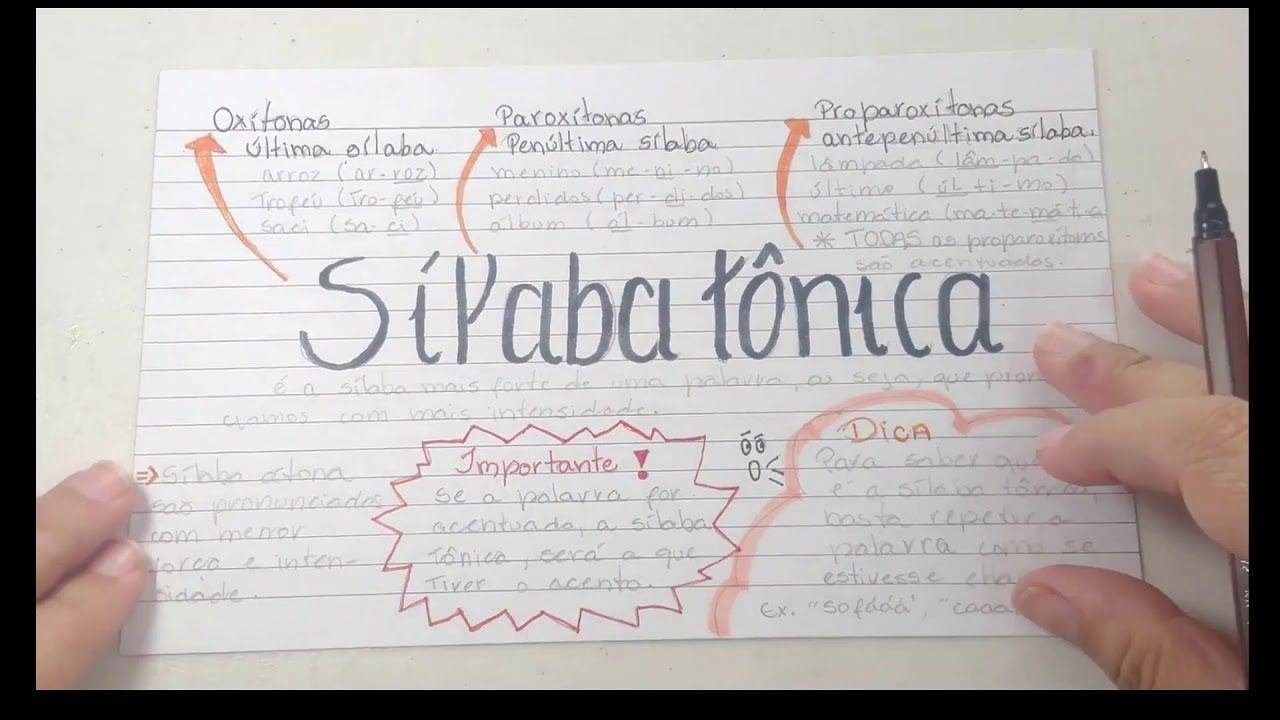 Oxítonas
última sílaba
arroz (ar-roz)
Troféu (Tro-féu)
saci (sa-ci)
Paroxítonas
Penúltima sílaba
menino (me-ni-no)
perdidos (per-di-dos)
álbum (ál-bum)
Proparoxítonas
antepenúltima sílaba.
lâmpada (lâm-pa-da)
último (úl-ti-mo)
matemática (ma-te-má-ti-c
* TODAS as proparoxítonas
são acentuadas.
Sílaba tônica
é a sílaba mais forte de uma palavra, ou seja, que pron
ciamos com mais intensidade.
⇒ Sílaba átona
são pronunciadas
com menor
força e inten-
sidade.
Importante!
Se a palavra for
acentuada, a sílaba
Tônica, será a que
Tiver o acento.
DICA
Para saber qu
é a sílaba tônica,
basta repetir a
palavra como se
estivesse cha
Ex. "sofááá", "caaa